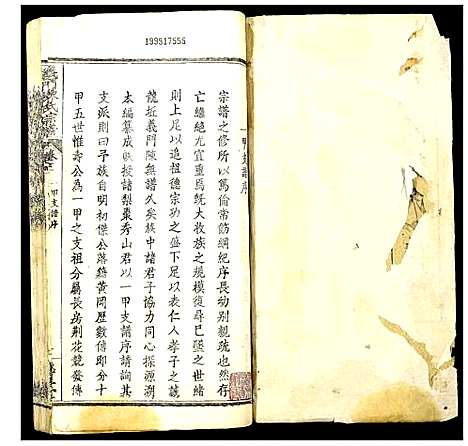 199517555
一甲支譜序
宗譜之修所以篤倫常飭綱紀序長幼别親疏也然存
亡繼絶尤宜重焉旣大收族之規模復尋已墜之世緒
則上足以追祖德宗功之盛下足以表仁人孝子之誠
龍坵義門陳無譜久矣族中諸君子協力同心探源溯
本編纂成帙授諸梨棗秀山君以一甲支譜序請詢其
支派則曰予族自明初傑公落籍黄岡歷數傳即分十
甲五世惟壽公為一甲之支祖分屬長房荆花競發傳
一甲支譜序